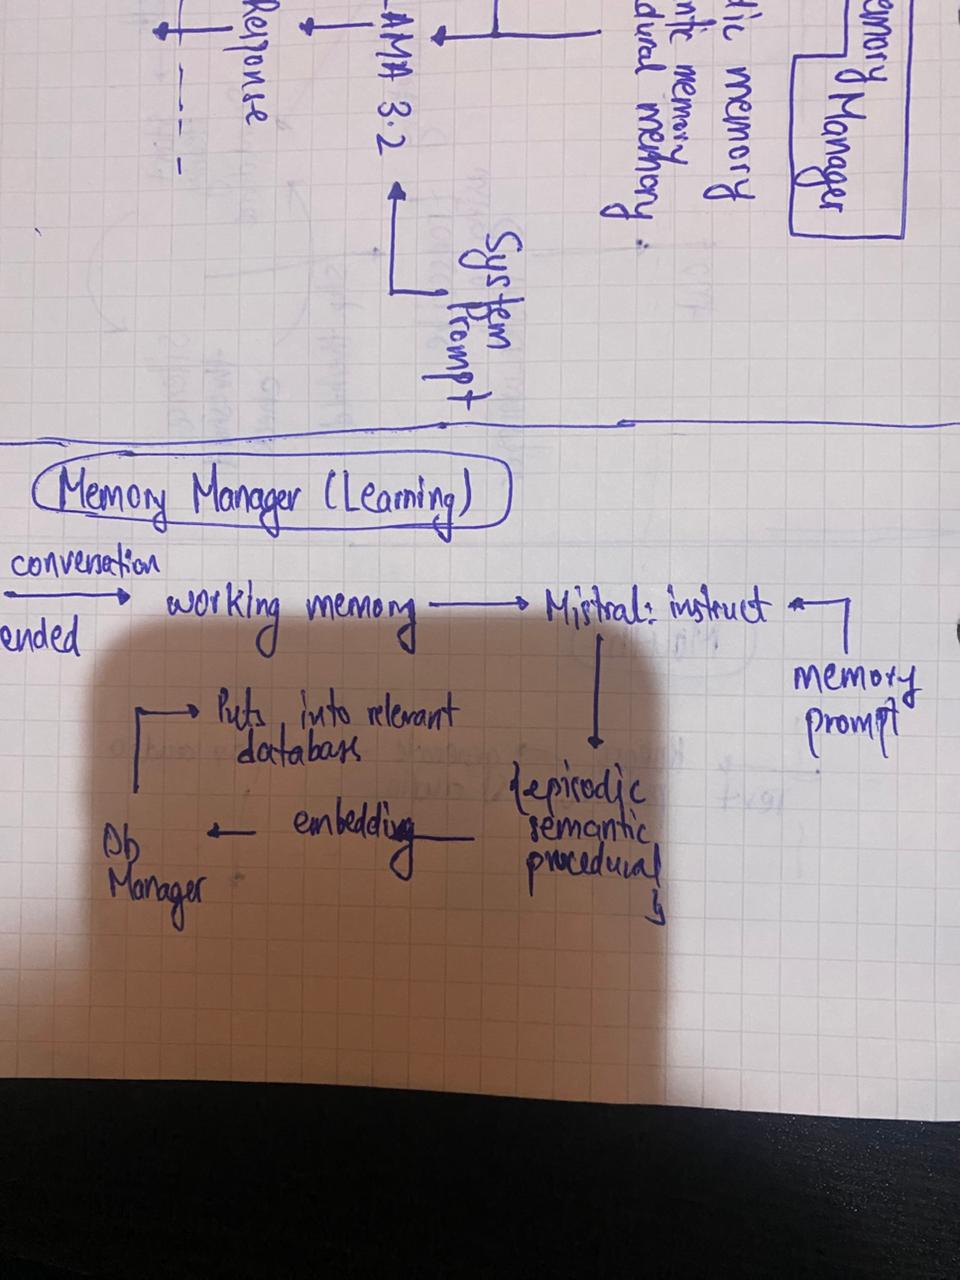 Memory
Manager
dic memory
ntic memory
dural memory
System
Prompt
AMA 3.2
Response
Memory Manager (Learning)
conversation
ended
working memory
Mistral: instruct
memory
prompt
Puts into relevant
database
{episodic
semantic
procedural
}
embedding
Db
Manager